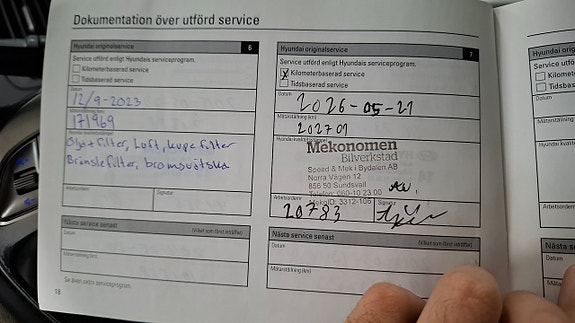 Dokumentation över utförd service
Hyundai originalservice 6
Service utförd enligt Hyundais serviceprogram.
Kilometerbaserad service
Tidsbaserad service
Datum
12/9-2023
Mätarställning (km)
171969
Olja+filter, Luft, kupefilter
Bränslefilter, bromsvätska
Arbetsordernr
Signatur
Nästa service senast (Vilket som först inträffar)
Datum
Mätarställning (km)
Se även extra serviceprogram.
18
Hyundai originalservice 7
Service utförd enligt Hyundais serviceprogram.
X Kilometerbaserad service
Tidsbaserad service
Datum
2026-05-21
Mätarställning (km)
202701
Mekonomen
Bilverkstad
Speed & Mek i Bydalen AB
Norra Vägen 12
856 50 Sundsvall
Telefon: 060-10 23 00
MekoID: 3312-106
Arbetsordernr
20783
Signatur
Nästa service senast (Vilket som först inträffar)
Datum
Mätarställning (km)
Hyundai
Service utförd
Kilometer
Tidsbaserad
Datum
Nästa
Datum